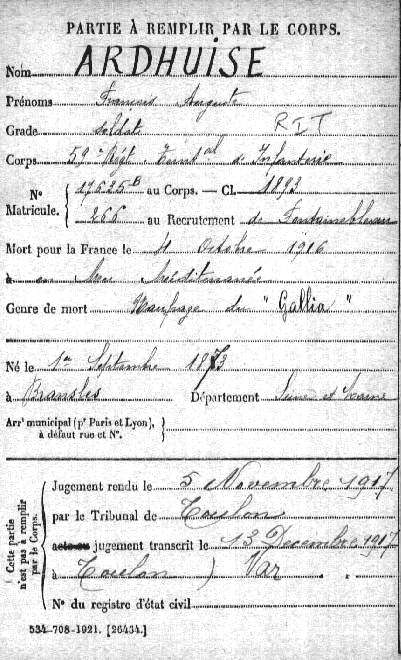 PARTIE À REMPLIR PAR LE CORPS.
Nom ARDHUISE
Prénoms Francis Auguste
Grade soldat R I T
Corps 59e Régt Territal d'Infanterie
N° Matricule. { 27525B au Corps. — Cl. 1893
266 au Recrutement de Fontainebleau
Mort pour la France le 4 Octobre 1916
à en Mer Méditerranée
Genre de mort Naufrage du "Gallia"
Né le 1er Septembre 1873
à Bransles Département Seine et Marne
Arrt municipal (pr Paris et Lyon), }
à défaut rue et N°.
Cette partie n'est pas à remplir par le Corps.
Jugement rendu le 5 Novembre 1917
par le Tribunal de Toulon
acte ou jugement transcrit le 13 Decembre 1917
à Toulon ) Var
N° du registre d'état civil
534-708-1921. [26434.]